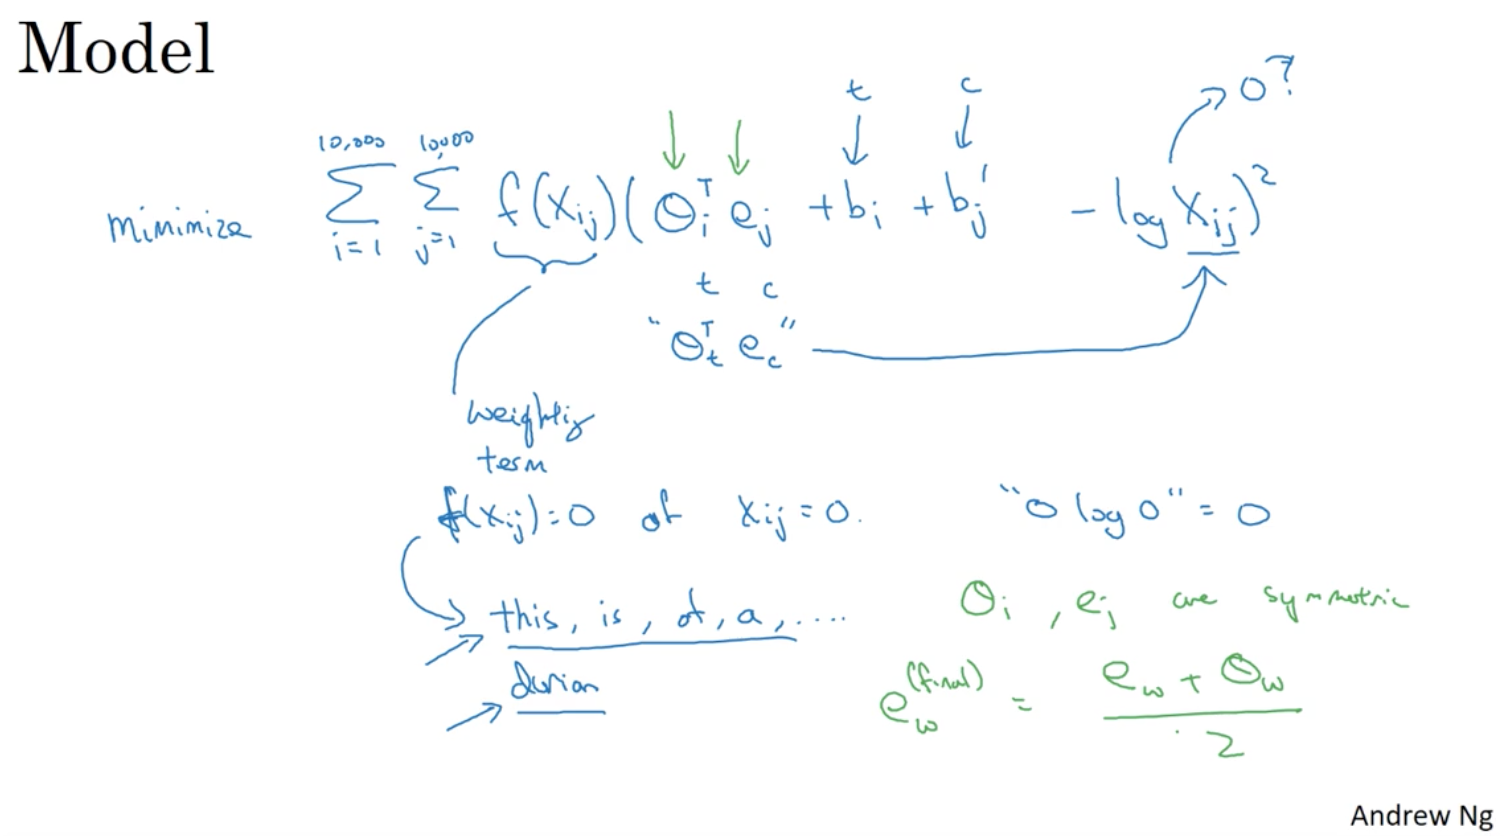 Model
t c 0?
minimize 10,000 Σ i=1 10,000 Σ j=1 f(Xij) (θiᵀ ej + bi + bj′ - log Xij)²
t c
"θtᵀ ec"
weighting
term
f(xij)=0 if xij=0. "0 log 0" = 0
this, is, of, a, .... θi, ej are symmetric
durian
ew(final) = ew + θw / 2
Andrew Ng